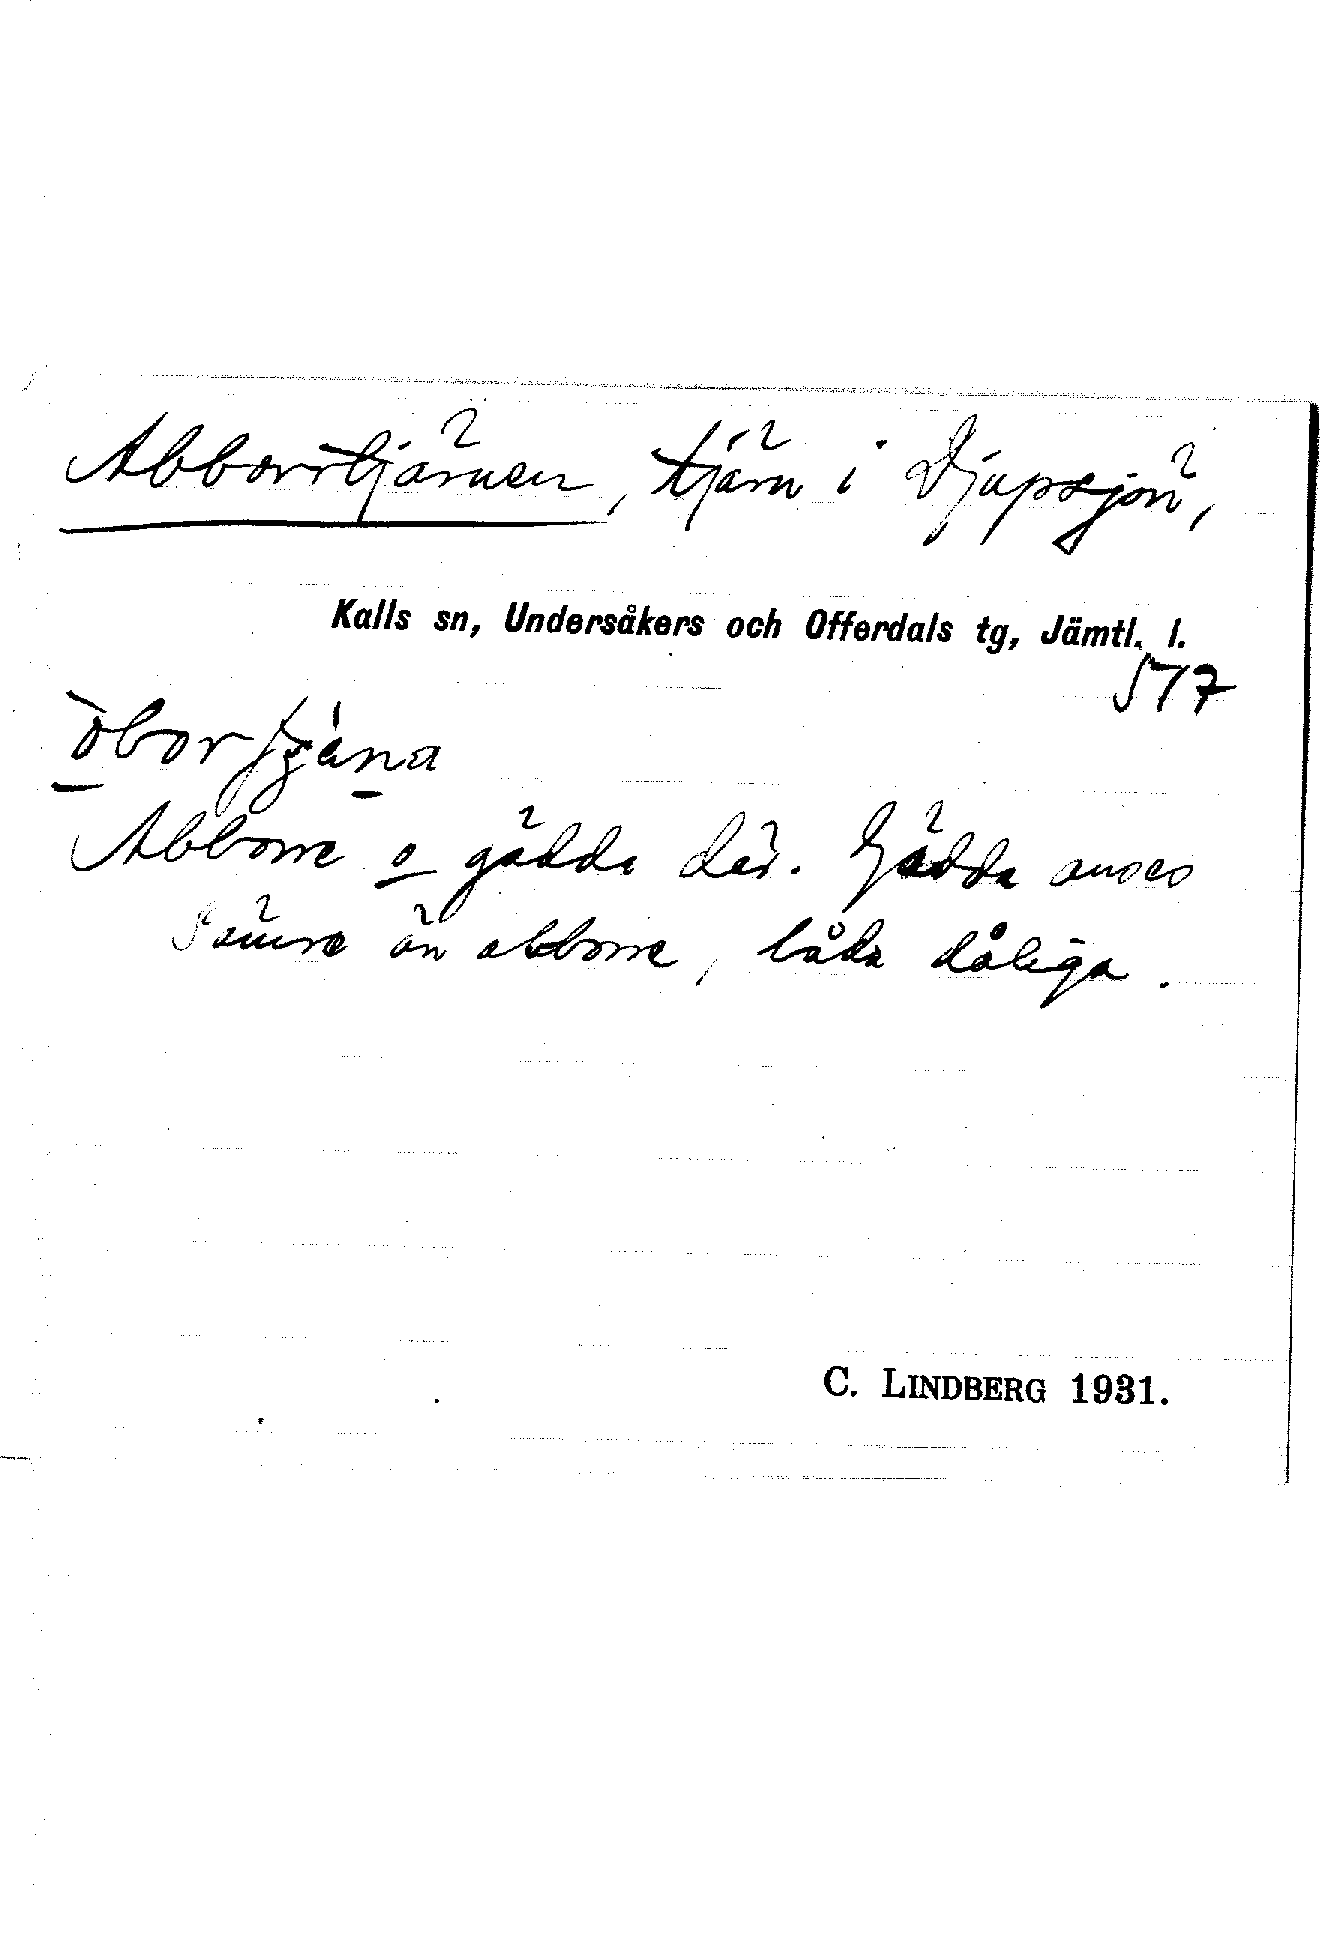 Abborrtjärnen, tjärn i Djupsjön,
Kalls sn, Undersåkers och Offerdals tg, Jämtl. l.
577
Abborre o gädda där. Gädda anses
sämre än abborre, båda dåliga.
C. LINDBERG 1931.